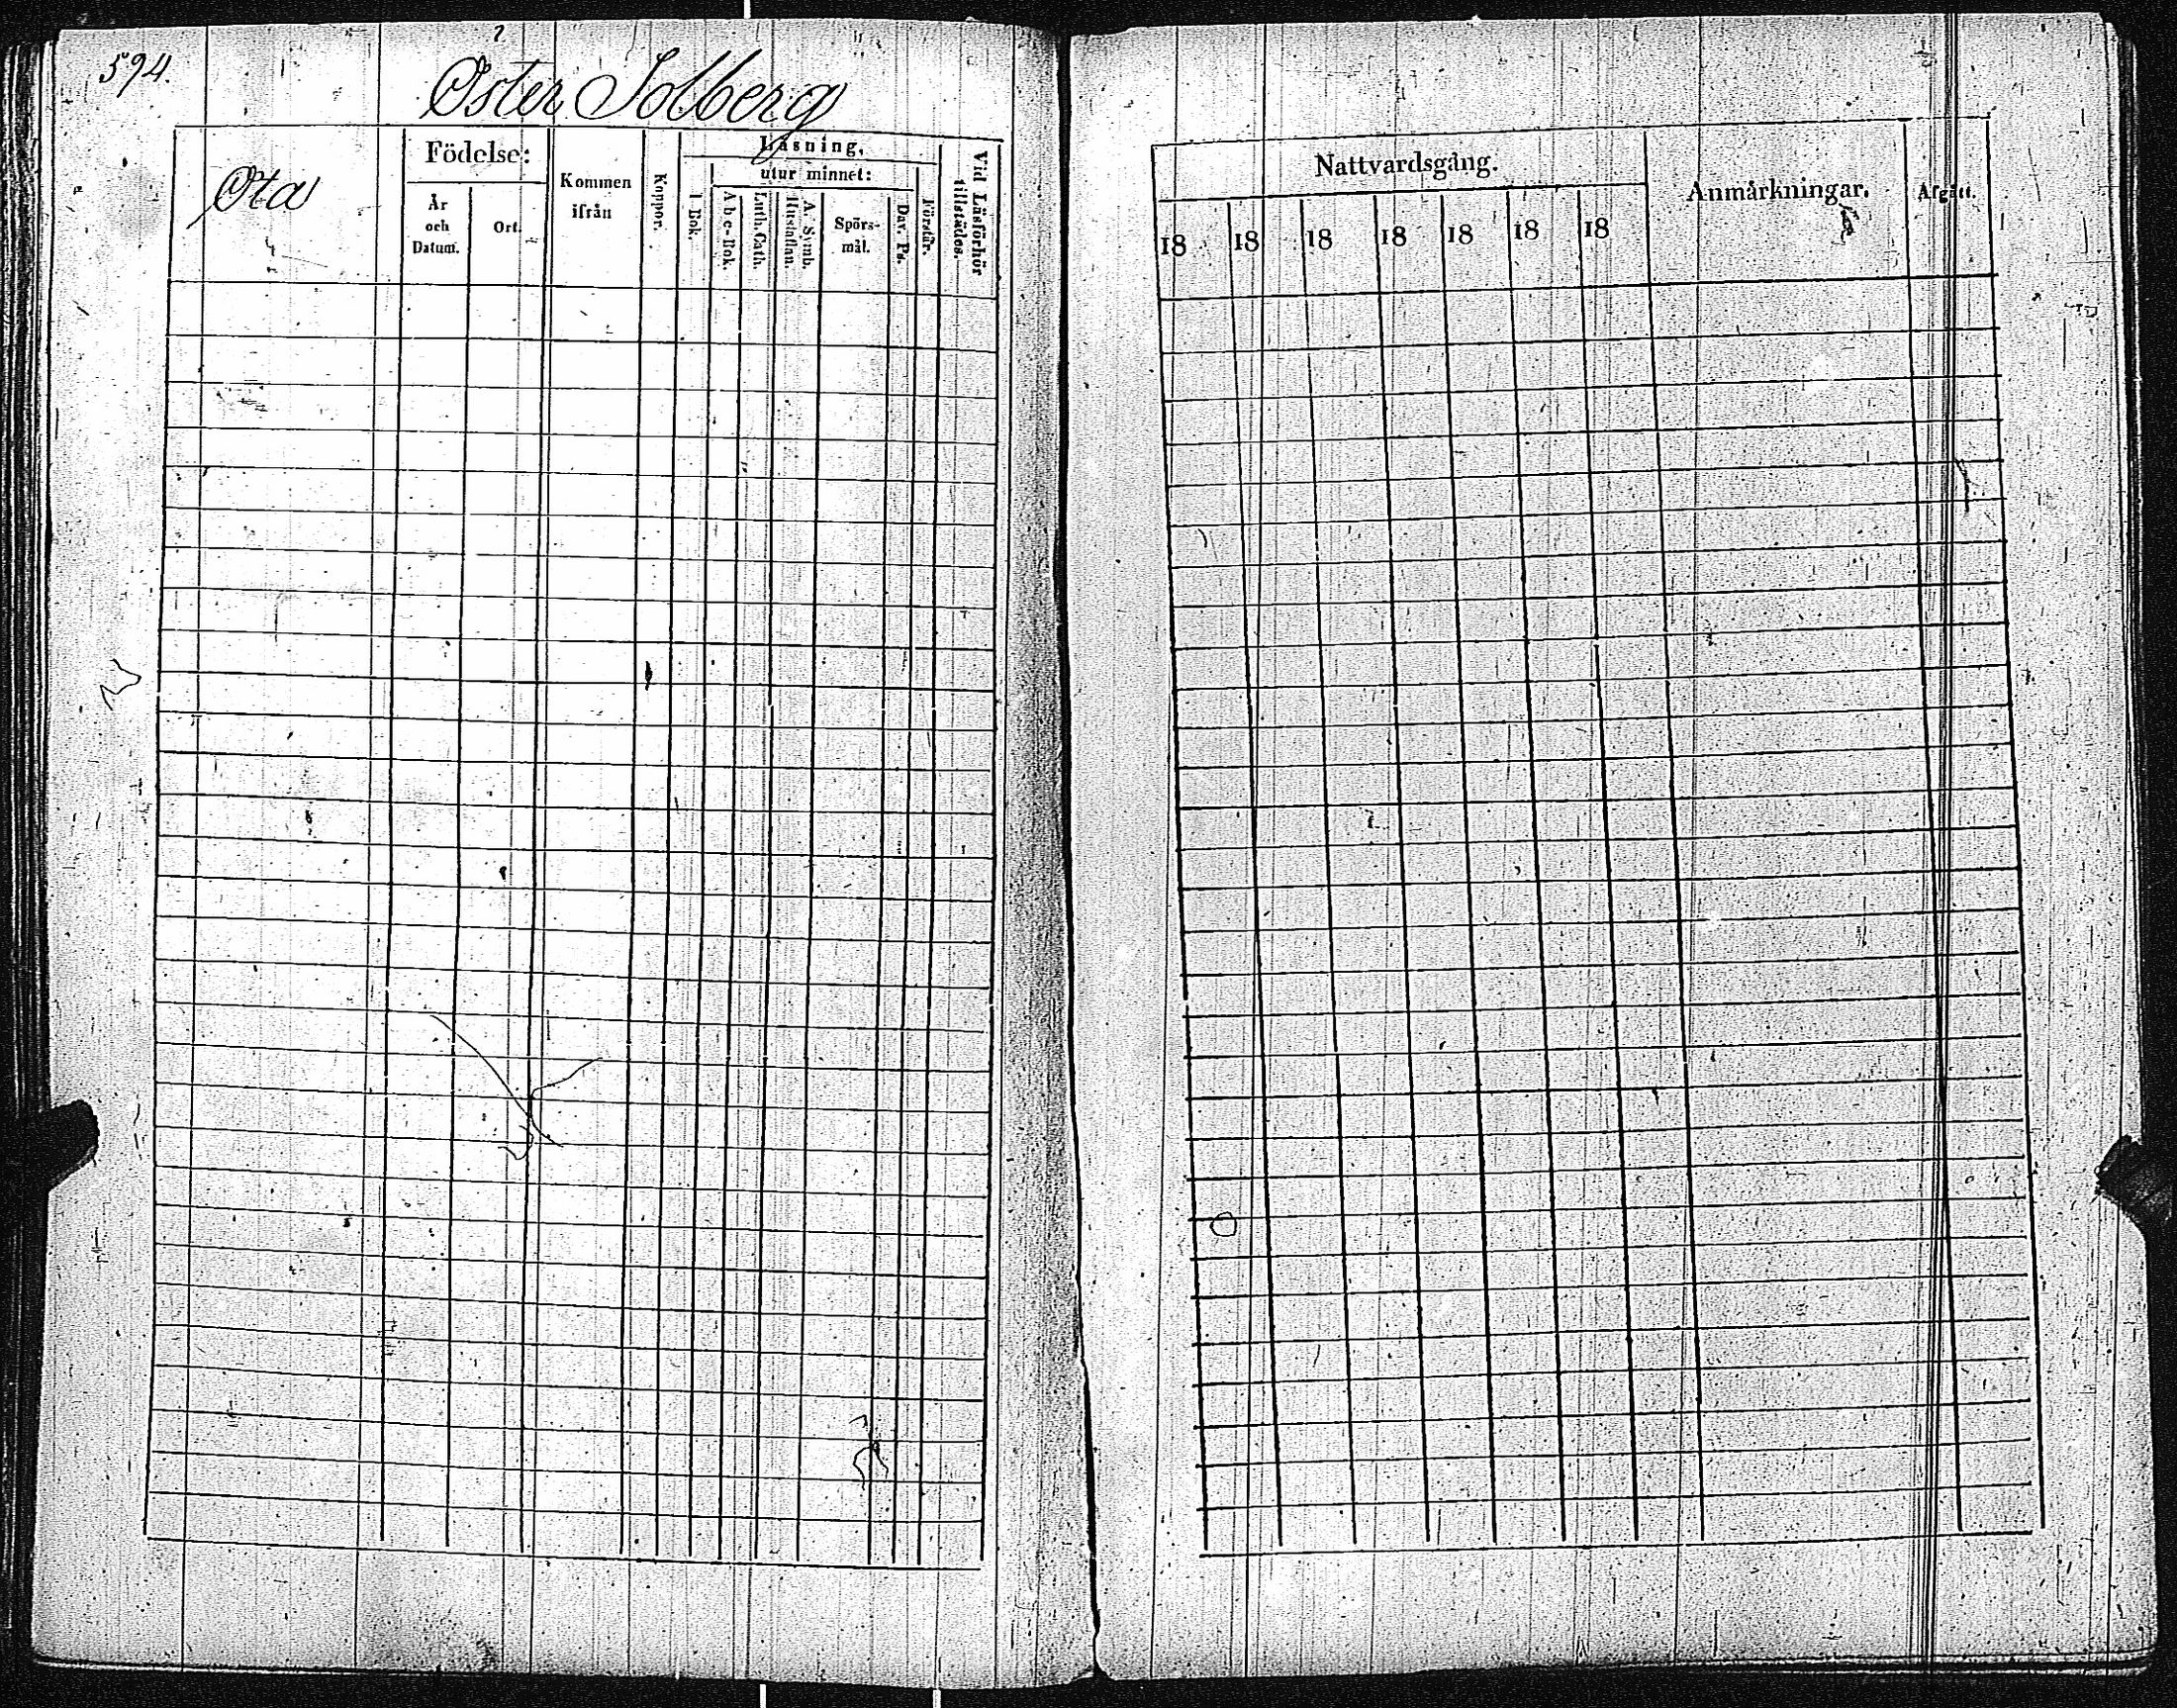 594.
Öster Solberg
Öta
Födelse:
År
och
Datum.
Ort.
Kommen
ifrån
Koppor.
Läsning,
utur minnet:
I Bok.
Abc-Bok.
Luth. Cath.
A. Symb.
Hustaflan.
Spörs-
mål.
Dav. Ps.
Förstår.
Vid Läsförhör
tillstädes.
Nattvardsgång.
18 18 18 18 18 18 18
Anmärkningar.
Afgått.